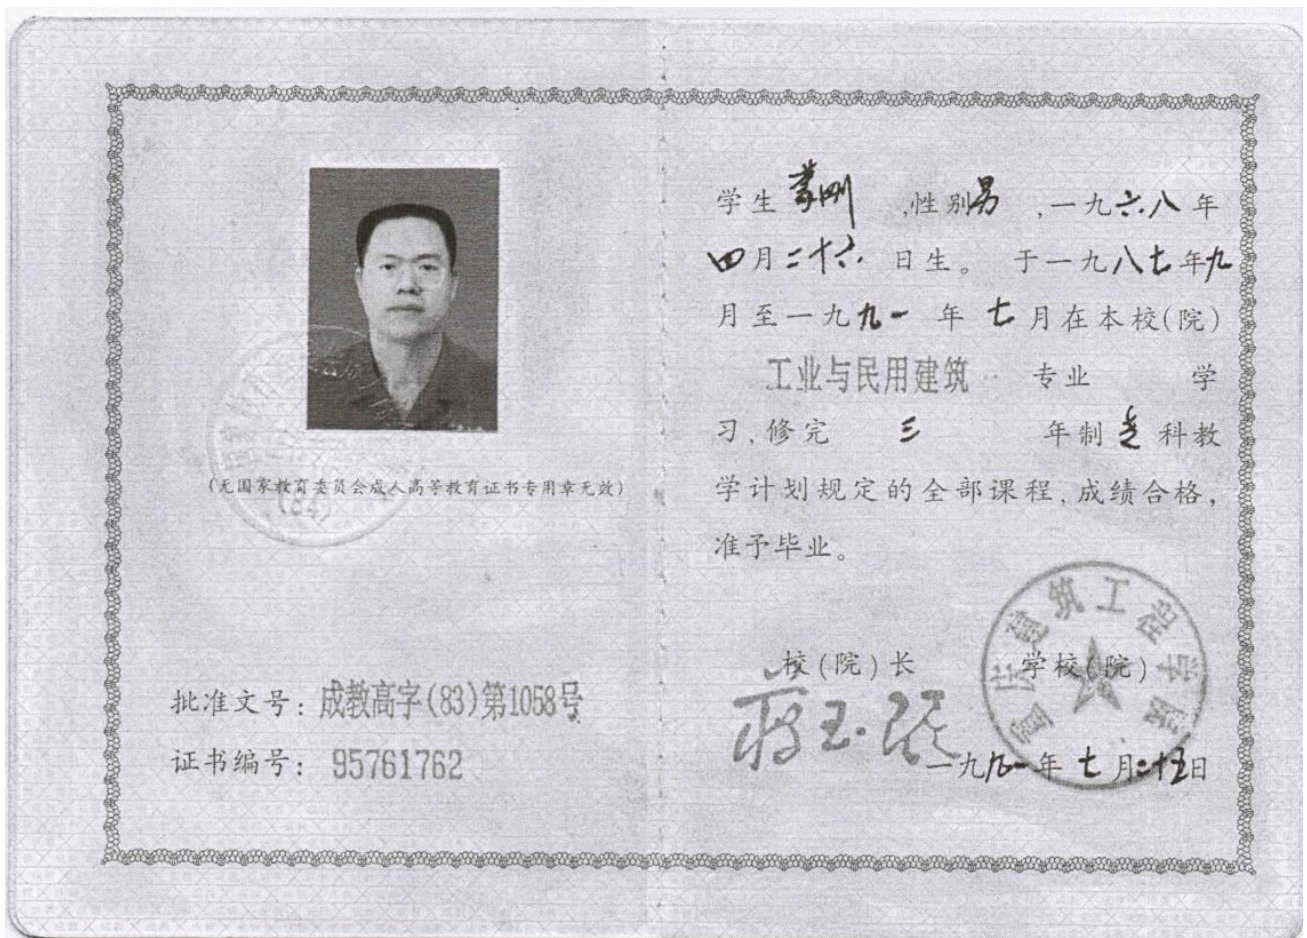 (无国家教育委员会成人高等教育证书专用章无效)
批准文号：成教高字(83)第1058号
证书编号：95761762
学生 刚 ,性别男 ,一九六八年
四月二十六日生。 于一九八七年九
月至一九九一年七月在本校(院)
工业与民用建筑 专业 学
习,修完 三 年制专科教
学计划规定的全部课程,成绩合格,
准予毕业。
校(院)长 学校(院)
重庆建筑工程学院
一九九一年七月二十五日